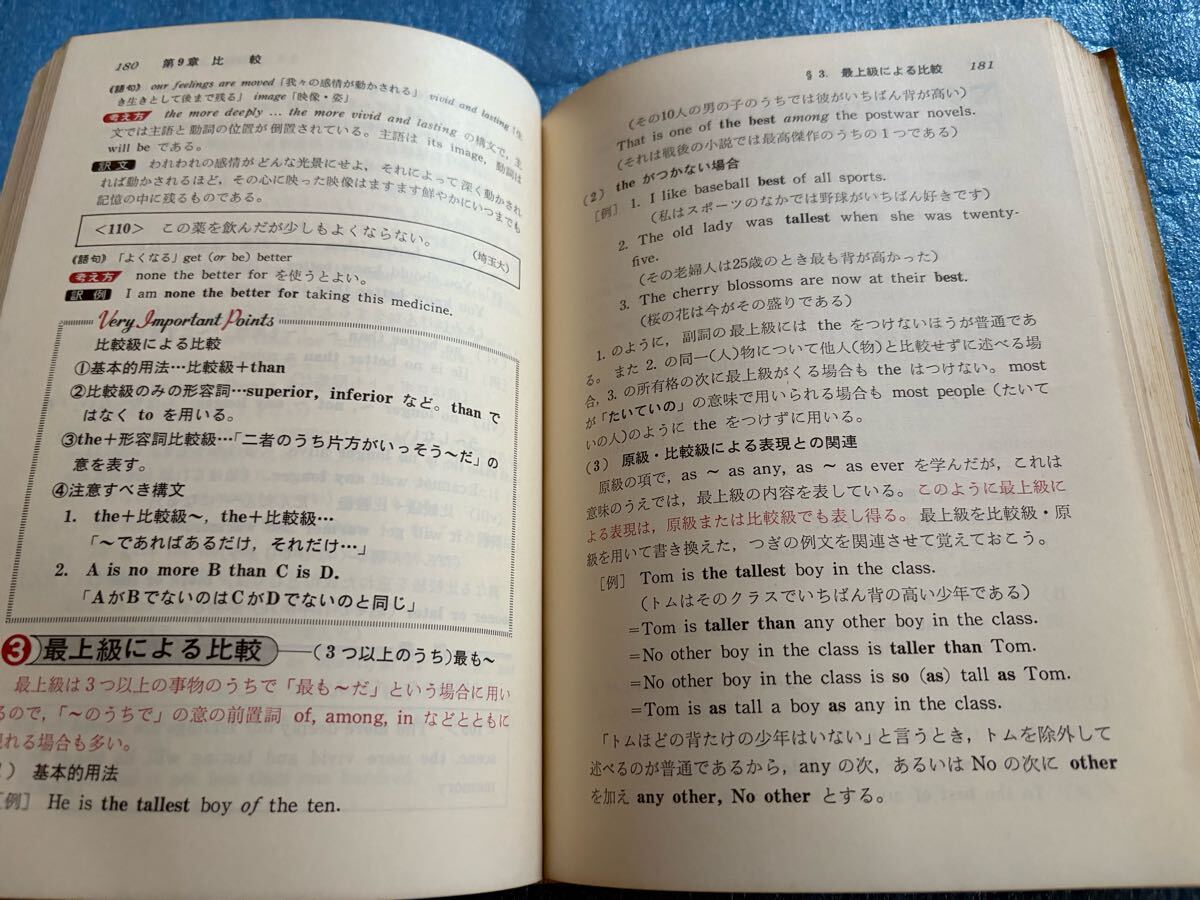 180 第9章 比 較
《語句》 our feelings are moved「我々の感情が動かされる」 vivid and lasting「生
き生きとして後まで残る」 image「映像・姿」
考え方 the more deeply … the more vivid and lasting の構文で，主
文では主語と動詞の位置が倒置されている。主語は its image, 動詞は
will be である。
訳文 われわれの感情がどんな光景にせよ，それによって深く動かされ
れば動かされるほど，その心に映った映像はますます鮮やかにいつまでも
記憶の中に残るものである。
<110> この薬を飲んだが少しもよくならない。
(埼玉大)
《語句》「よくなる」get (or be) better
考え方 none the better for を使うとよい。
訳例 I am none the better for taking this medicine.
Very Important Points
比較級による比較
①基本的用法…比較級＋than
②比較級のみの形容詞…superior, inferior など。than で
はなく to を用いる。
③the＋形容詞比較級…「二者のうち片方がいっそう～だ」の
意を表す。
④注意すべき構文
1. the＋比較級～，the＋比較級…
「～であればあるだけ，それだけ…」
2. A is no more B than C is D.
「AがBでないのはCがDでないのと同じ」
3 最上級による比較 ——(3つ以上のうち)最も～
最上級は3つ以上の事物のうちで「最も～だ」という場合に用い
るので，「～のうちで」の意の前置詞 of, among, in などとともに
現れる場合も多い。
1) 基本的用法
[例] He is the tallest boy of the ten.
§3. 最上級による比較 181
(その10人の男の子のうちでは彼がいちばん背が高い)
That is one of the best among the postwar novels.
(それは戦後の小説では最高傑作のうちの1つである)
(2) the がつかない場合
[例] 1. I like baseball best of all sports.
(私はスポーツのなかでは野球がいちばん好きです)
2. The old lady was tallest when she was twenty-
five.
(その老婦人は25歳のとき最も背が高かった)
3. The cherry blossoms are now at their best.
(桜の花は今がその盛りである)
1. のように，副詞の最上級には the をつけないほうが普通であ
る。また 2. の同一(人)物について他人(物)と比較せずに述べる場
合，3. の所有格の次に最上級がくる場合も the はつけない。most
が「たいていの」の意味で用いられる場合も most people (たいて
いの人)のように the をつけずに用いる。
(3) 原級・比較級による表現との関連
原級の項で，as ～ as any, as ～ as ever を学んだが，これは
意味のうえでは，最上級の内容を表している。このように最上級に
よる表現は，原級または比較級でも表し得る。最上級を比較級・原
級を用いて書き換えた，つぎの例文を関連させて覚えておこう。
[例] Tom is the tallest boy in the class.
(トムはそのクラスでいちばん背の高い少年である)
=Tom is taller than any other boy in the class.
=No other boy in the class is taller than Tom.
=No other boy in the class is so (as) tall as Tom.
=Tom is as tall a boy as any in the class.
「トムほどの背たけの少年はいない」と言うとき，トムを除外して
述べるのが普通であるから，any の次，あるいは No の次に other
を加え any other, No other とする。